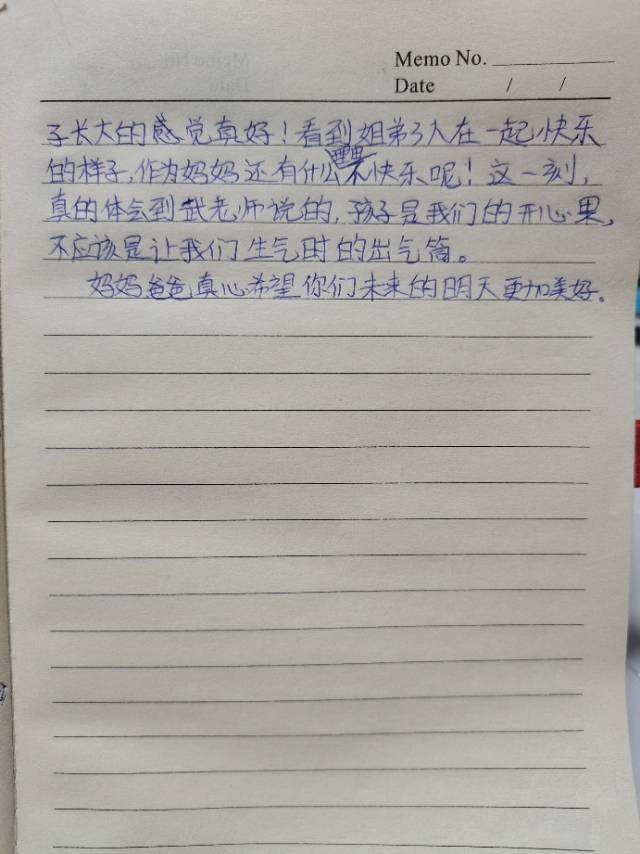 Memo No.
Date / /
子长大的感觉真好！看到姐弟3人在一起快乐
的样子，作为妈妈还有什么理由不快乐呢！这一刻，
真的体会到武老师说的，孩子是我们的开心果，
不应该是让我们生气时的出气筒。
妈妈爸爸真心希望你们未来的明天更加美好。